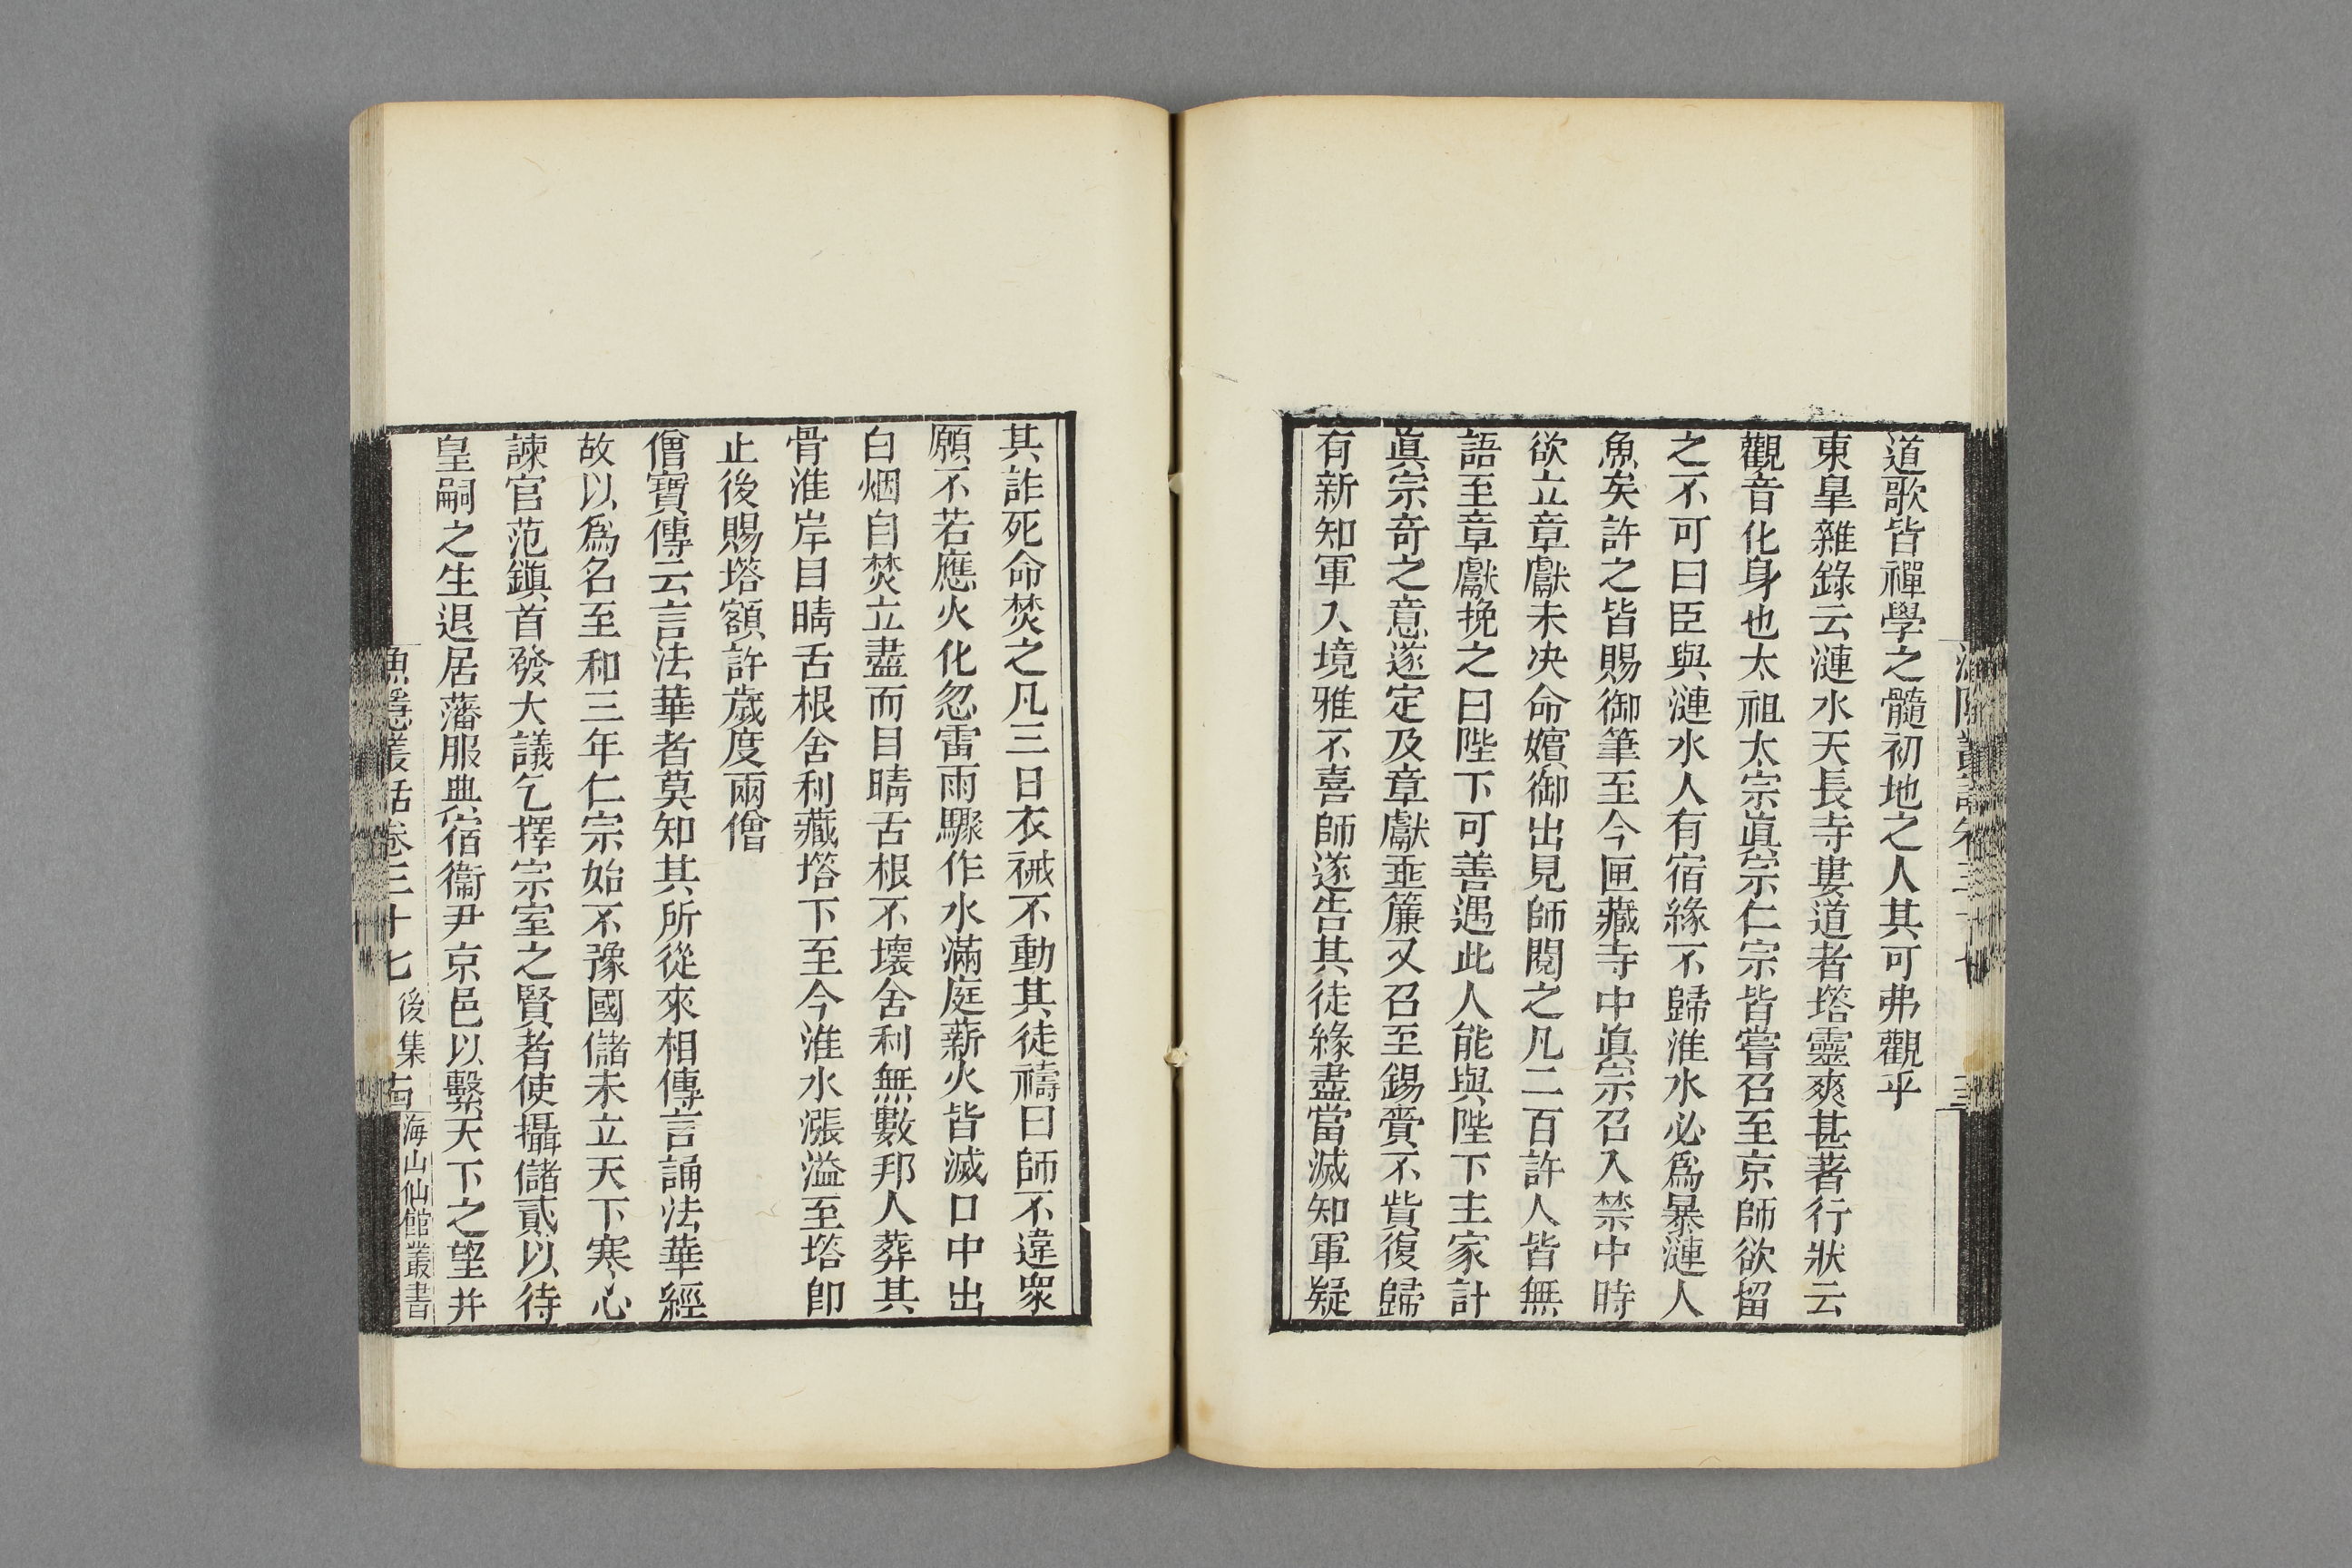 道歌皆禪學之髓初地之人其可弗觀乎
東臯雜錄云漣水天長寺婁道者塔靈爽甚著行狀云
觀音化身也太祖太宗眞宗仁宗皆嘗召至京師欲留
之不可曰臣與漣水人有宿緣不歸淮水必爲暴漣人
魚矣許之皆賜御筆至今匣藏寺中眞宗召入禁中時
欲立章獻未决命嬪御出見師閱之凡二百許人皆無
語至章獻挽之曰陛下可善遇此人能與陛下主家計
眞宗奇之意遂定及章獻垂簾又召至錫賚不貲復歸
有新知軍入境雅不喜師遂告其徒緣盡當滅知軍疑
其詐死命焚之凡三日衣祴不動其徒禱曰師不違衆
願不若應火化忽雷雨驟作水滿庭薪火皆滅口中出
白烟自焚立盡而目睛舌根不壞舍利無數邦人葬其
骨淮岸目睛舌根舍利藏塔下至今淮水漲溢至塔卽
止後賜塔額許歲度兩僧
僧寶傳云言法華者莫知其所從來相傳言誦法華經
故以爲名至和三年仁宗始不豫國儲未立天下寒心
諫官范鎭首發大議乞擇宗室之賢者使攝儲貳以待
皇嗣之生退居藩服典宿衞尹京邑以繫天下之望并
漁隱叢話卷三十七 後集 海山仙館叢書